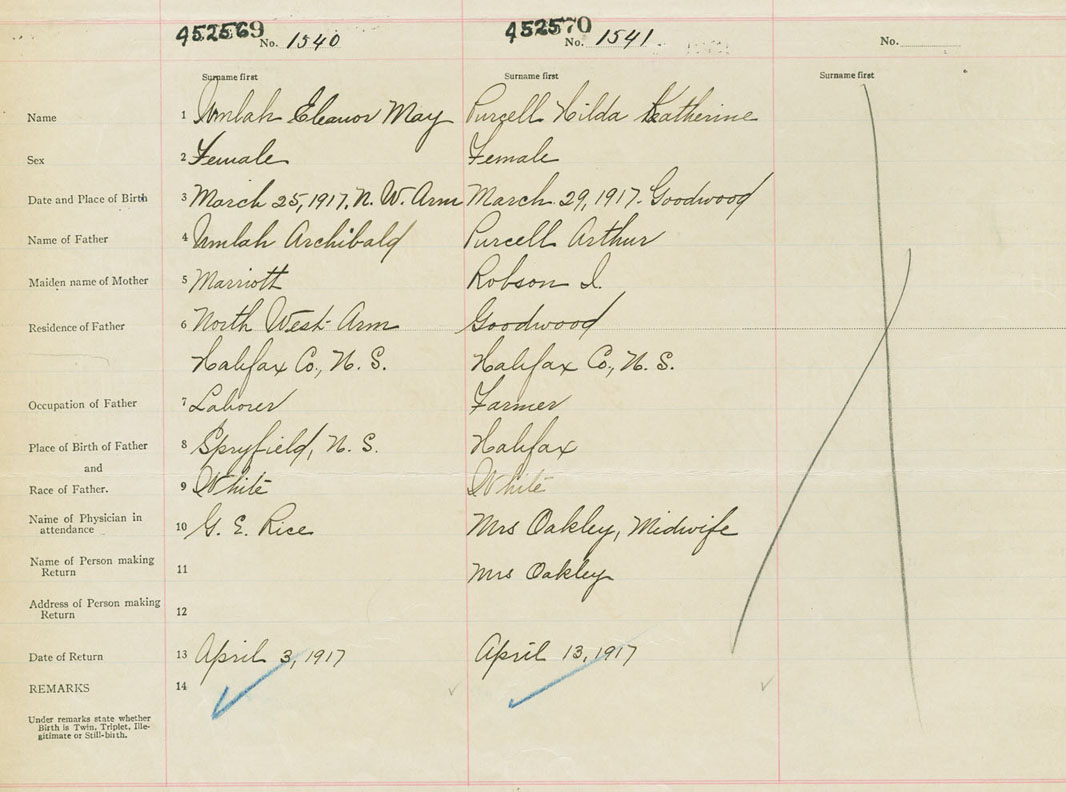 452569 No. 1540 452570 No. 1541 No.
Surname first Surname first Surname first
Name 1 Umlah Eleanor May Purcell Hilda Katherine
Sex 2 Female Female
Date and Place of Birth 3 March 25, 1917, N. W. Arm March 29, 1917. Goodwood
Name of Father 4 Umlah Archibald Purcell Arthur
Maiden name of Mother 5 Marriott Robson I.
Residence of Father 6 North West Arm Goodwood
Halifax Co., N. S. Halifax Co., N. S.
Occupation of Father 7 Laborer Farmer
Place of Birth of Father 8 Spryfield, N. S. Halifax
and
Race of Father. 9 White White
Name of Physician in
attendance 10 G. E. Rice Mrs Oakley, Midwife
Name of Person making
Return 11 Mrs Oakley
Address of Person making
Return 12
Date of Return 13 April 3, 1917 April 13, 1917
REMARKS 14
Under remarks state whether
Birth is Twin, Triplet, Ille-
gitimate or Still-birth.